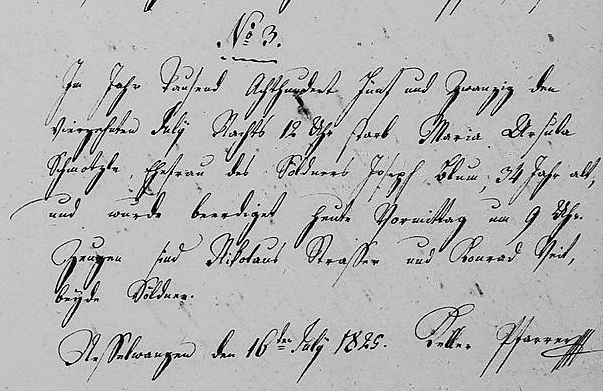 No 3.
Im Jahr Tausend Achthundert Fünf und Zwanzig den
vierzehnten July Nachts 12 Uhr starb Maria Ursula
Schmotzle, Ehefrau des Söldners Joseph Blum, 34 Jahr alt,
und wurde beerdiget heute Vormittag um 9 Uhr.
Zeugen sind Nikolaus Strasser und Konrad Veit,
beyde Söldner.
Nesselwangen den 16ten July 1825. Keller Pfarrer